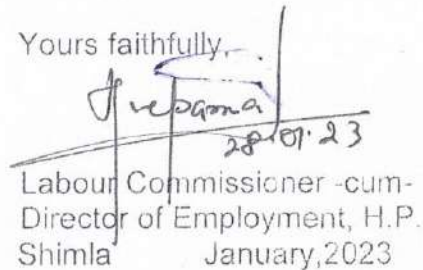 Yours faithfully,
28.01.23
Labour Commissioner -cum-
Director of Employment, H.P.
Shimla January,2023